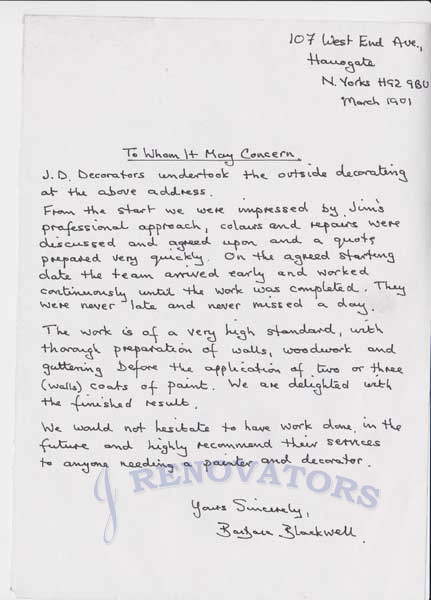 107 West End Ave.,
Harrogate
N. Yorks HG2 9BU
March 1901
To Whom It May Concern.
J.D. Decorators undertook the outside decorating
at the above address.
From the start we were impressed by Jim's
professional approach, colours and repairs were
discussed and agreed upon and a quote
prepared very quickly. On the agreed starting
date the team arrived early and worked
continuously until the work was completed. They
were never late and never missed a day.
The work is of a very high standard, with
thorough preparation of walls, woodwork and
guttering before the application of two or three
(walls) coats of paint. We are delighted with
the finished result.
We would not hesitate to have work done in the
future and highly recommend their services
to anyone needing a painter and decorator.
J RENOVATORS
Yours Sincerely,
Barbara Blackwell.